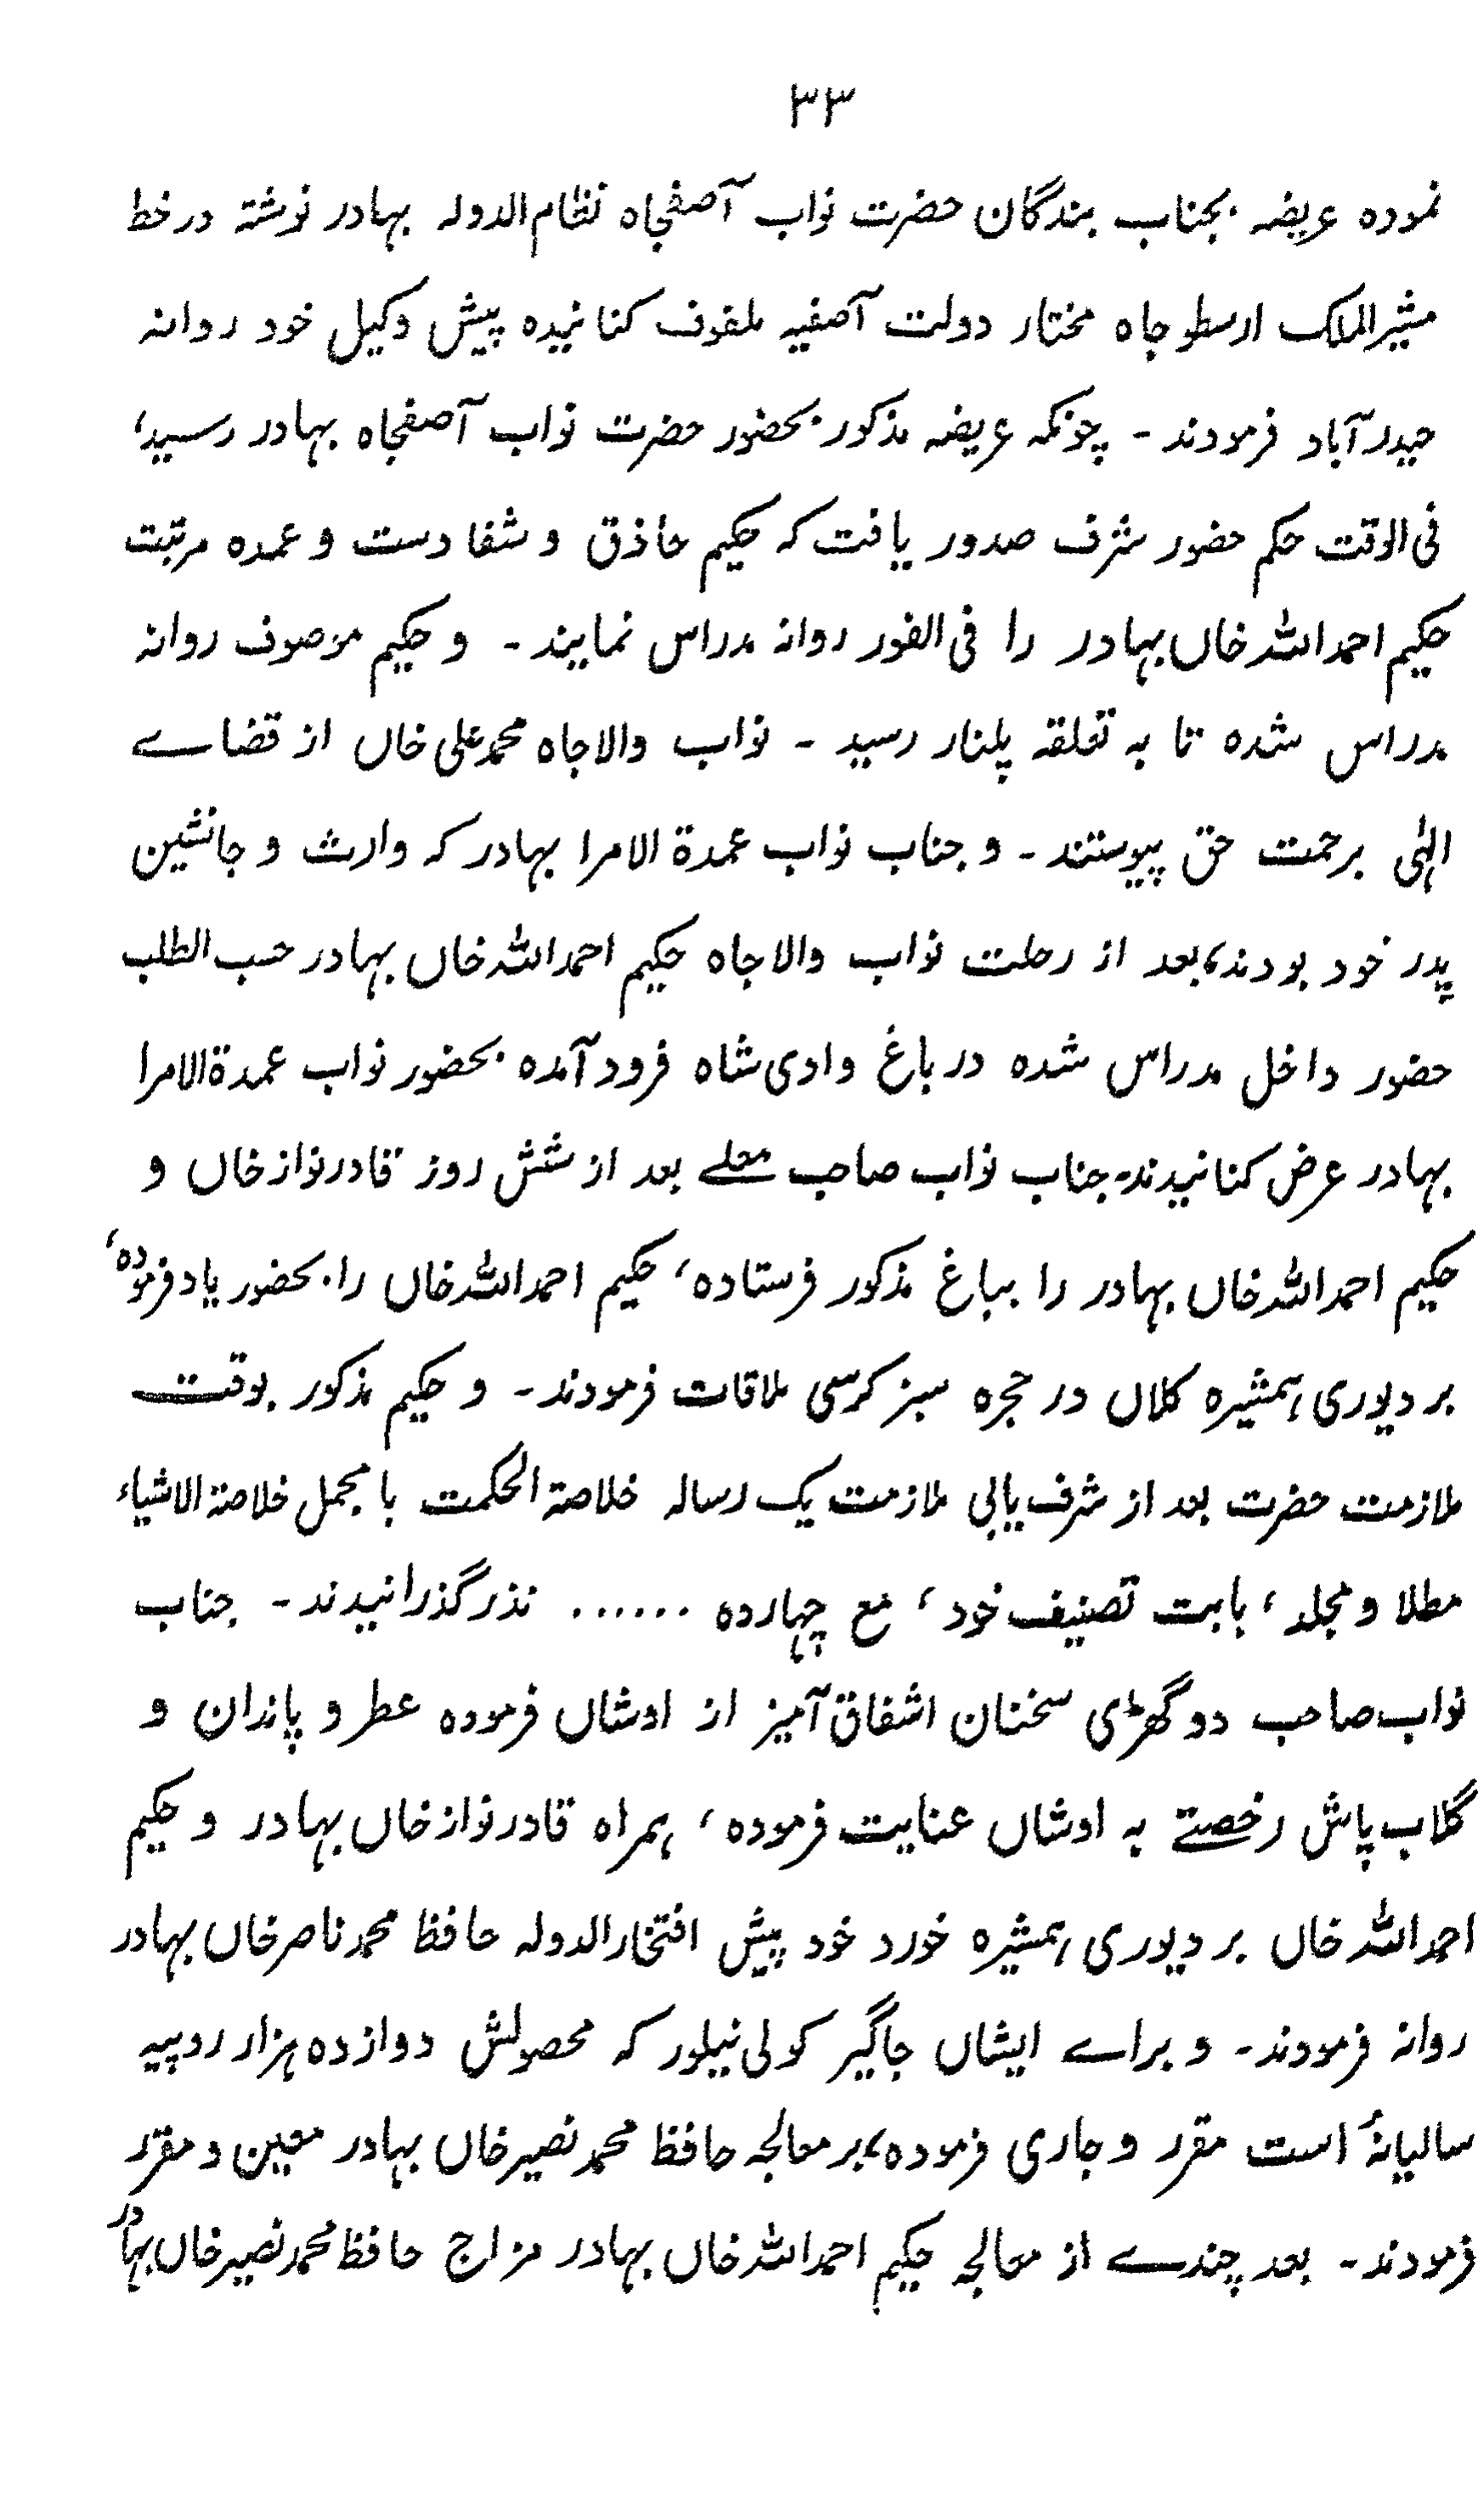 ۳۳
نموده عریضہ بجناب بندگان حضرت نواب آصفجاہ نظام الدولہ بہادر نوشتہ در خط
مشیر الملک ارسطو جاہ مختار دولت آصفیہ ملفوف کنانیدہ پیش وکیل خود روانہ
حیدر آباد فرمودند ۔ چونکہ عریضہ مذکور بحضور حضرت نواب آصفجاہ بہادر رسید،
فی الوقت حکم حضور شرف صدور یافت کہ حکیم حاذق و شفا دست و عمدہ مرتبت
حکیم احمد اللہ خاں بہادر را فی الفور روانہ مدراس نمایند ۔ و حکیم موصوف روانہ
مدراس شدہ تا بہ تعلقہ پلنار رسید ۔ نواب والا جاہ محمد علی خاں از قضاے
الہٰی برحمت حق پیوستند ۔ و جناب نواب عمدۃ الامرا بہادر کہ وارث و جانشین
پدر خود بودند، بعد از رحلت نواب والا جاہ حکیم احمد اللہ خاں بہادر حسب الطلب
حضور داخل مدراس شدہ در باغ وادی شاہ فرود آمدہ بحضور نواب عمدۃ الامرا
بہادر عرض کنانیدند۔ جناب نواب صاحب معلے بعد از شش روز قادر نواز خاں و
حکیم احمد اللہ خاں بہادر را بباغ مذکور فرستادہ، حکیم احمد اللہ خاں را بحضور یاد فرمودہ،
بر دیوری ہمشیرہ کلاں در حجرہ سبز کرسی ملاقات فرمودند ۔ و حکیم مذکور بوقت
ملازمت حضرت بعد از شرف یابی ملازمت یک رسالہ خلاصۃ الحکمت با مجمل خلاصۃ الاشیاء
مطلا و مجلد، بابت تصنیف خود، مع چہاردہ ...... نذر گذرانیدند ۔ جناب
نواب صاحب دو گھڑی سخنان اشفاق آمیز از اوشاں فرمودہ عطر و پاندان و
گلاب پاش رخصتے بہ اوشاں عنایت فرمودہ، ہمراہ قادر نواز خاں بہادر و حکیم
احمد اللہ خاں بر دیوری ہمشیرہ خورد خود پیش افتخار الدولہ حافظ محمد ناصر خاں بہادر
روانہ فرمودند ۔ و براے ایشاں جاگیر کولی نیلور کہ محصولش دوازدہ ہزار روپیہ
سالیانہٴ است مقرر و جاری فرمودہ، بر معالجہ حافظ محمد نصیر خاں بہادر معین و مقرر
فرمودند ۔ بعد چندے از معالجہ حکیم احمد اللہ خاں بہادر مزاج حافظ محمد نصیر خاں بہادر